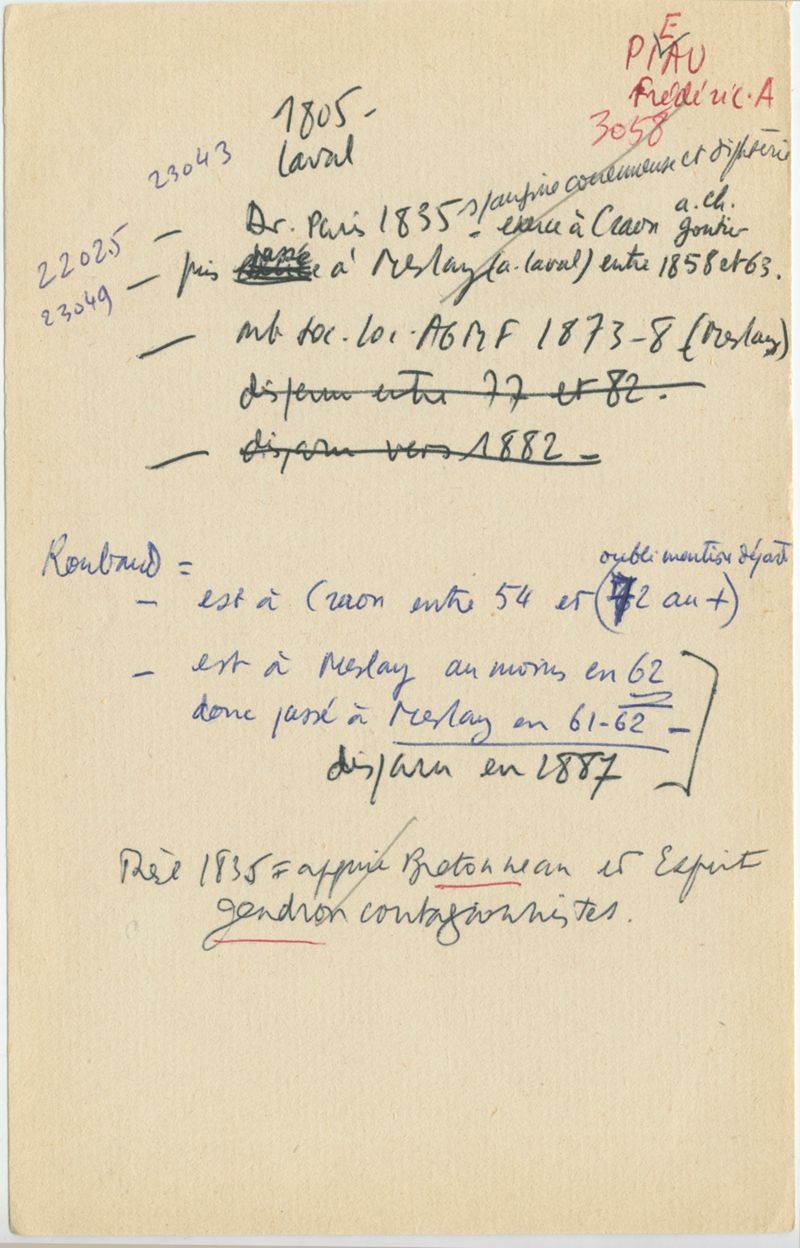 E
PIAU
Frédéric. A
3058
1805-
Laval
23043
s/angine couenneuse et diphtérie
- Dr. Paris 1835 - exerce à Craon a. ch. gontier
22025
- puis passé à Meslay (a. laval) entre 1858 et 63.
23049
- mb soc. loc. AGMF 1873-8 (Meslay)
disparu entre 77 et 82.
- disparu vers 1882 -
Roubaud =
oubli mention départ
- est à Craon entre 54 et (72 au +)
- est à Meslay au moins en 62
donc passé à Meslay en 61-62 -
disparu en 1887
Thèse 1835 = appuie Bretonneau et Esprit
gendron contagionnistes.